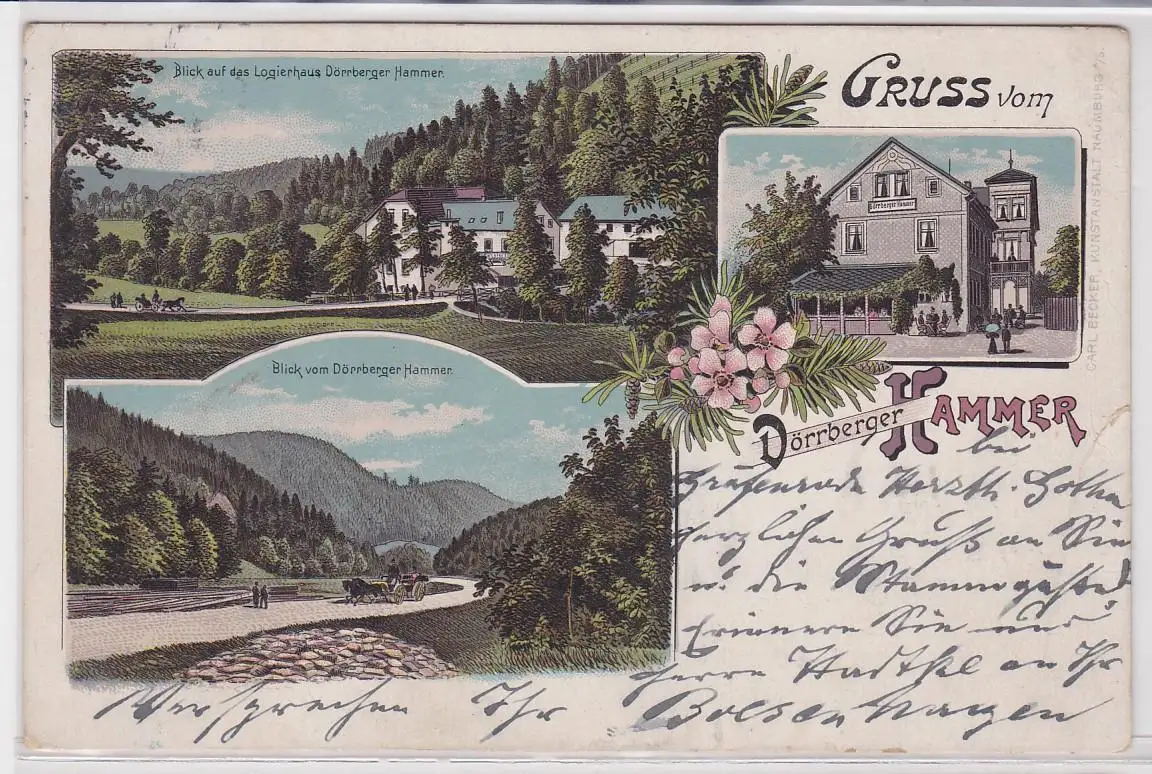 Blick auf das Logierhaus Dörrberger Hammer.
GRUSS vom
Dörrberger Hammer
CARL BECKER, KUNSTANSTALT NAUMBURG a/S.
Blick vom Dörrberger Hammer.
Dörrberger HAMMER
bei
Gräfenroda Herzth. Gotha
Herzlichen Gruß an Sie
u. die Stammgäste
Erinnere Sie und
Herrn an Ihr
Versprechen Ihr